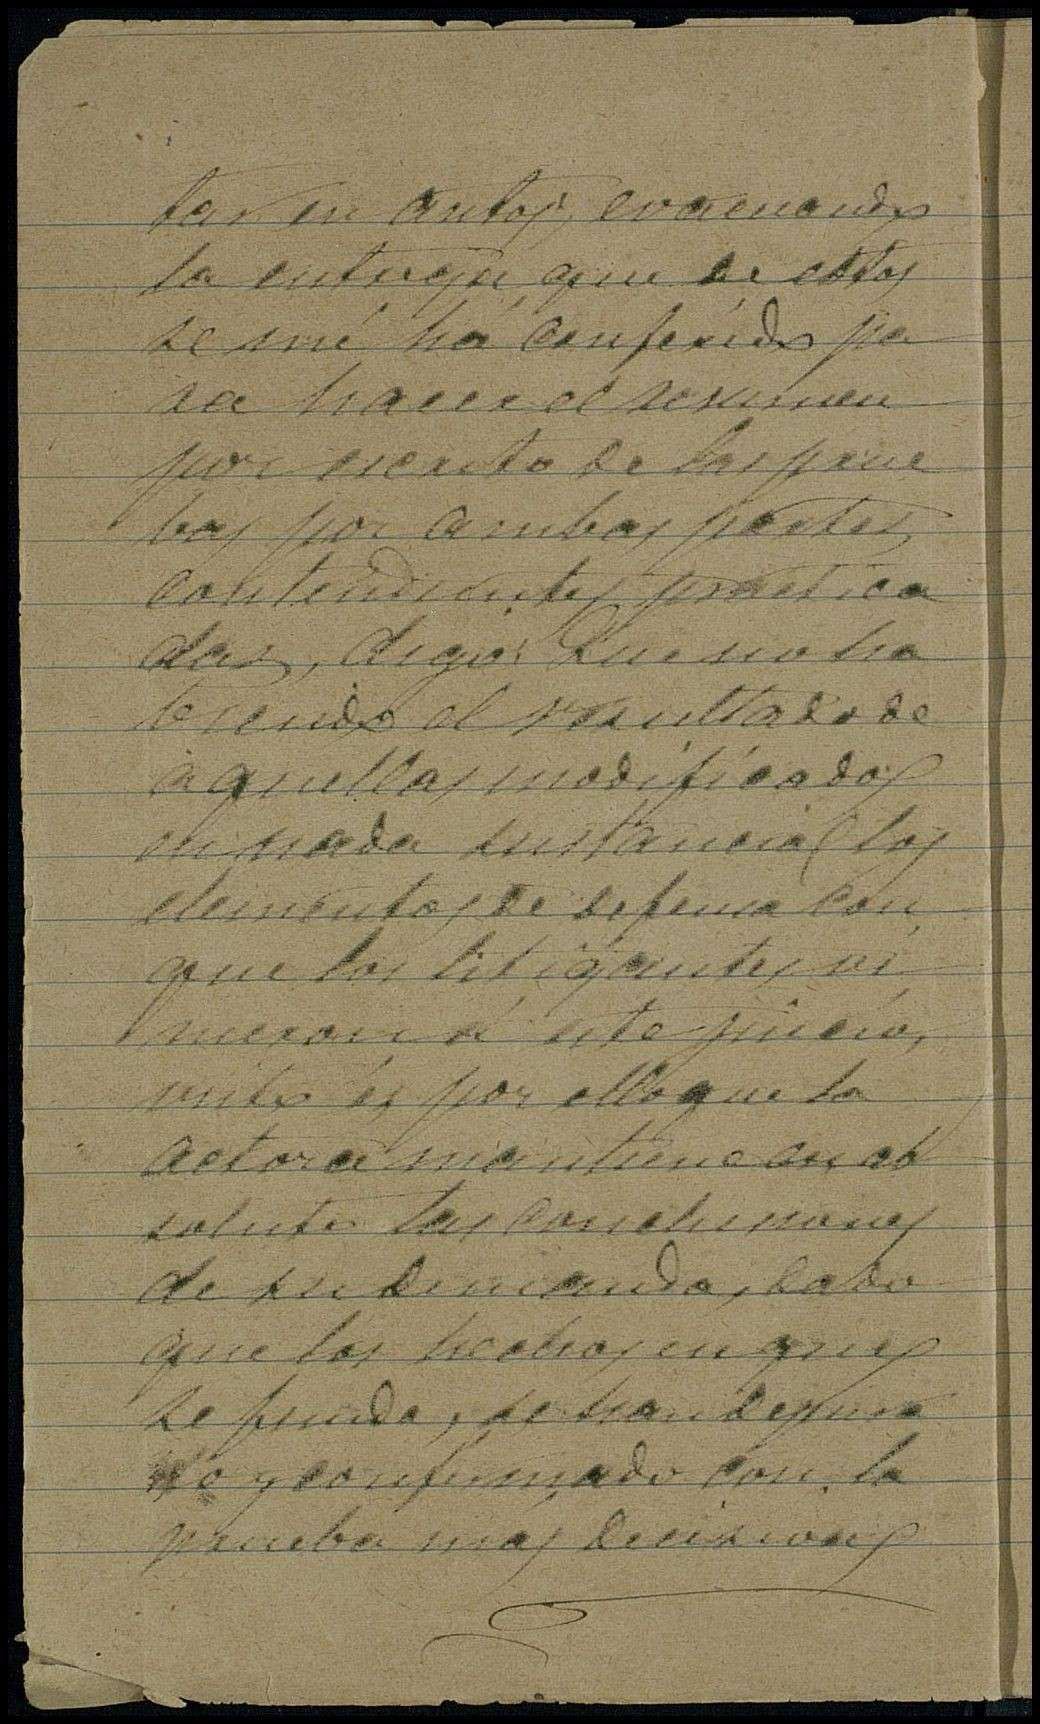 tar en autos, evacuando
la entrega que de estos
se me há conferido pa
ra hacer el resumen
por escrito de las prue
bas por ambas partes
contendientes practica
das, digo: Que no ha
biendo el resultado de
aquellas modificados
en nada sustancial los
elementos de defensa con
que los litigantes vi
nieron á este juicio,
és por ello que la
actora mantiene en ab
soluto las conclusiones
de su demanda, dado
que los hechos en que
se funda, se han depura
do y confirmado con la
prueba mas decisivas